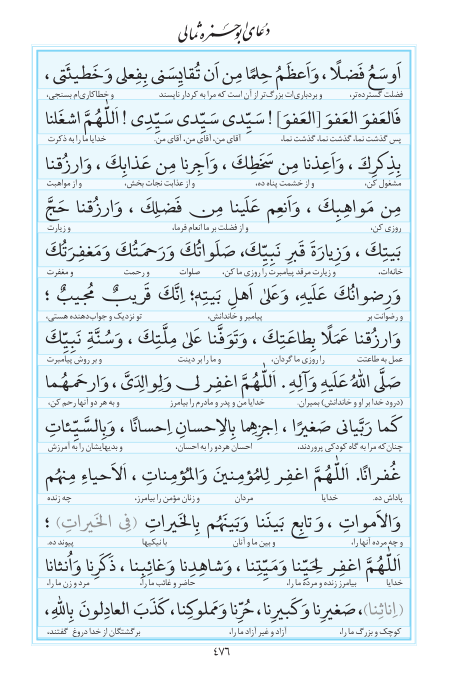 دعای ابوحمزه ثمالی
اَوسَعُ فَضلًا ، وَاَعظَمُ حِلمًا مِن اَن تُقایِسَنی بِفِعلی وَخَطیئَتی ،
فضلت گسترده‌تر، و بردباری‌ات بزرگ‌تر از آن است که مرا به کردار ناپسند و خطاکاری‌ام بسنجی،
فَالعَفوَ العَفوَ [العَفوَ] ! سَیِّدی سَیِّدی سَیِّدی ! اَللّٰهُمَّ اشغَلنا
پس گذشت نما، گذشت نما، گذشت نما، آقای من، آقای من، آقای من. خدایا ما را به ذکرت
بِذِکرِكَ ، وَاَعِذنا مِن سَخَطِكَ ، وَاَجِرنا مِن عَذابِكَ ، وَارزُقنا
مشغول کن، و از خشمت پناه ده، و از عذابت نجات بخش، و از مواهبت
مِن مَواهِبِكَ ، وَاَنعِم عَلَینا مِن فَضلِكَ ، وَارزُقنا حَجَّ
روزی کن، و از فضلت بر ما انعام فرما، و زیارت
بَیتِكَ ، وَزِیارَةَ قَبرِ نَبِیِّكَ، صَلَواتُكَ وَرَحمَتُكَ وَمَغفِرَتُكَ
خانه‌ات، و زیارت مرقد پیامبرت را روزی ما کن، صلوات و رحمت و مغفرت
وَرِضوانُكَ عَلَیهِ، وَعَلیٰ اَهلِ بَیتِهِ؛ اِنَّكَ قَریبٌ مُجیبٌ ؛
و رضوانت بر پیامبر و خاندانش، تو نزدیک و جواب‌دهنده هستی،
وَارزُقنا عَمَلًا بِطاعَتِكَ ، وَتَوَفَّنا عَلیٰ مِلَّتِكَ ، وَسُنَّةِ نَبِیِّكَ
عمل به طاعتت را روزی ما گردان، و ما را بر دینت و بر روش پیامبرت
صَلَّی اللّٰهُ عَلَیهِ وَآلِهِ . اَللّٰهُمَّ اغفِر لی وَلِوالِدَیَّ ، وَارحَمهُما
(درود خدا بر او و خاندانش) بمیران. خدایا من و پدر و مادرم را بیامرز و به هر دو آنها رحم کن،
کَما رَبَّیانی صَغیرًا ، اِجزِهِما بِالاِحسانِ اِحسانًا ، وَبِالسَّیِّئاتِ
چنان‌که مرا به گاه کودکی پروردند، احسان هر دو را به احسان، و بدیهایشان را به آمرزش
غُفرانًا. اَللّٰهُمَّ اغفِر لِلمُؤمِنینَ وَالمُؤمِناتِ ، اَلاَحیاءِ مِنهُم
پاداش ده. خدایا مردان و زنان مؤمن را بیامرز، چه زنده
وَالاَمواتِ ، وَتابِع بَینَنا وَبَینَهُم بِالخَیراتِ (فِی الخَیراتِ) ؛
و چه مرده آنها را، و بین ما و آنان با نیکیها پیوند ده.
اَللّٰهُمَّ اغفِر لِحَیِّنا وَمَیِّتِنا ، وَشاهِدِنا وَغائِبِنا ، ذَکَرِنا وَاُنثانا
خدایا بیامرز زنده و مرده ما را، حاضر و غائب ما را، مرد و زن ما را،
(اِناثِنا)، صَغیرِنا وَکَبیرِنا، حُرِّنا وَمَملوکِنا، کَذَبَ العادِلونَ بِاللّٰهِ،
کوچک و بزرگ ما را، آزاد و غیر آزاد ما را، برگشتگان از خدا دروغ گفتند،
٤٧٦